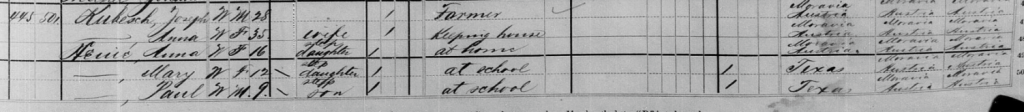 445 501 Kubesch, Joseph W M 28 1 Farmer Moravia Austria Moravia Austria Moravia Austria
—, Anna W F 35 wife 1 Keeping house Moravia Austria Moravia Austria Moravia Austria
Anna W F 16 step daughter 1 at home Moravia Austria Moravia Austria Moravia Austria
—, Mary W F 12 step daughter 1 at school 1 Texas Moravia Austria Moravia Austria
—, Paul W M 9 step son 1 at school 1 Texas Moravia Austria Moravia Austria